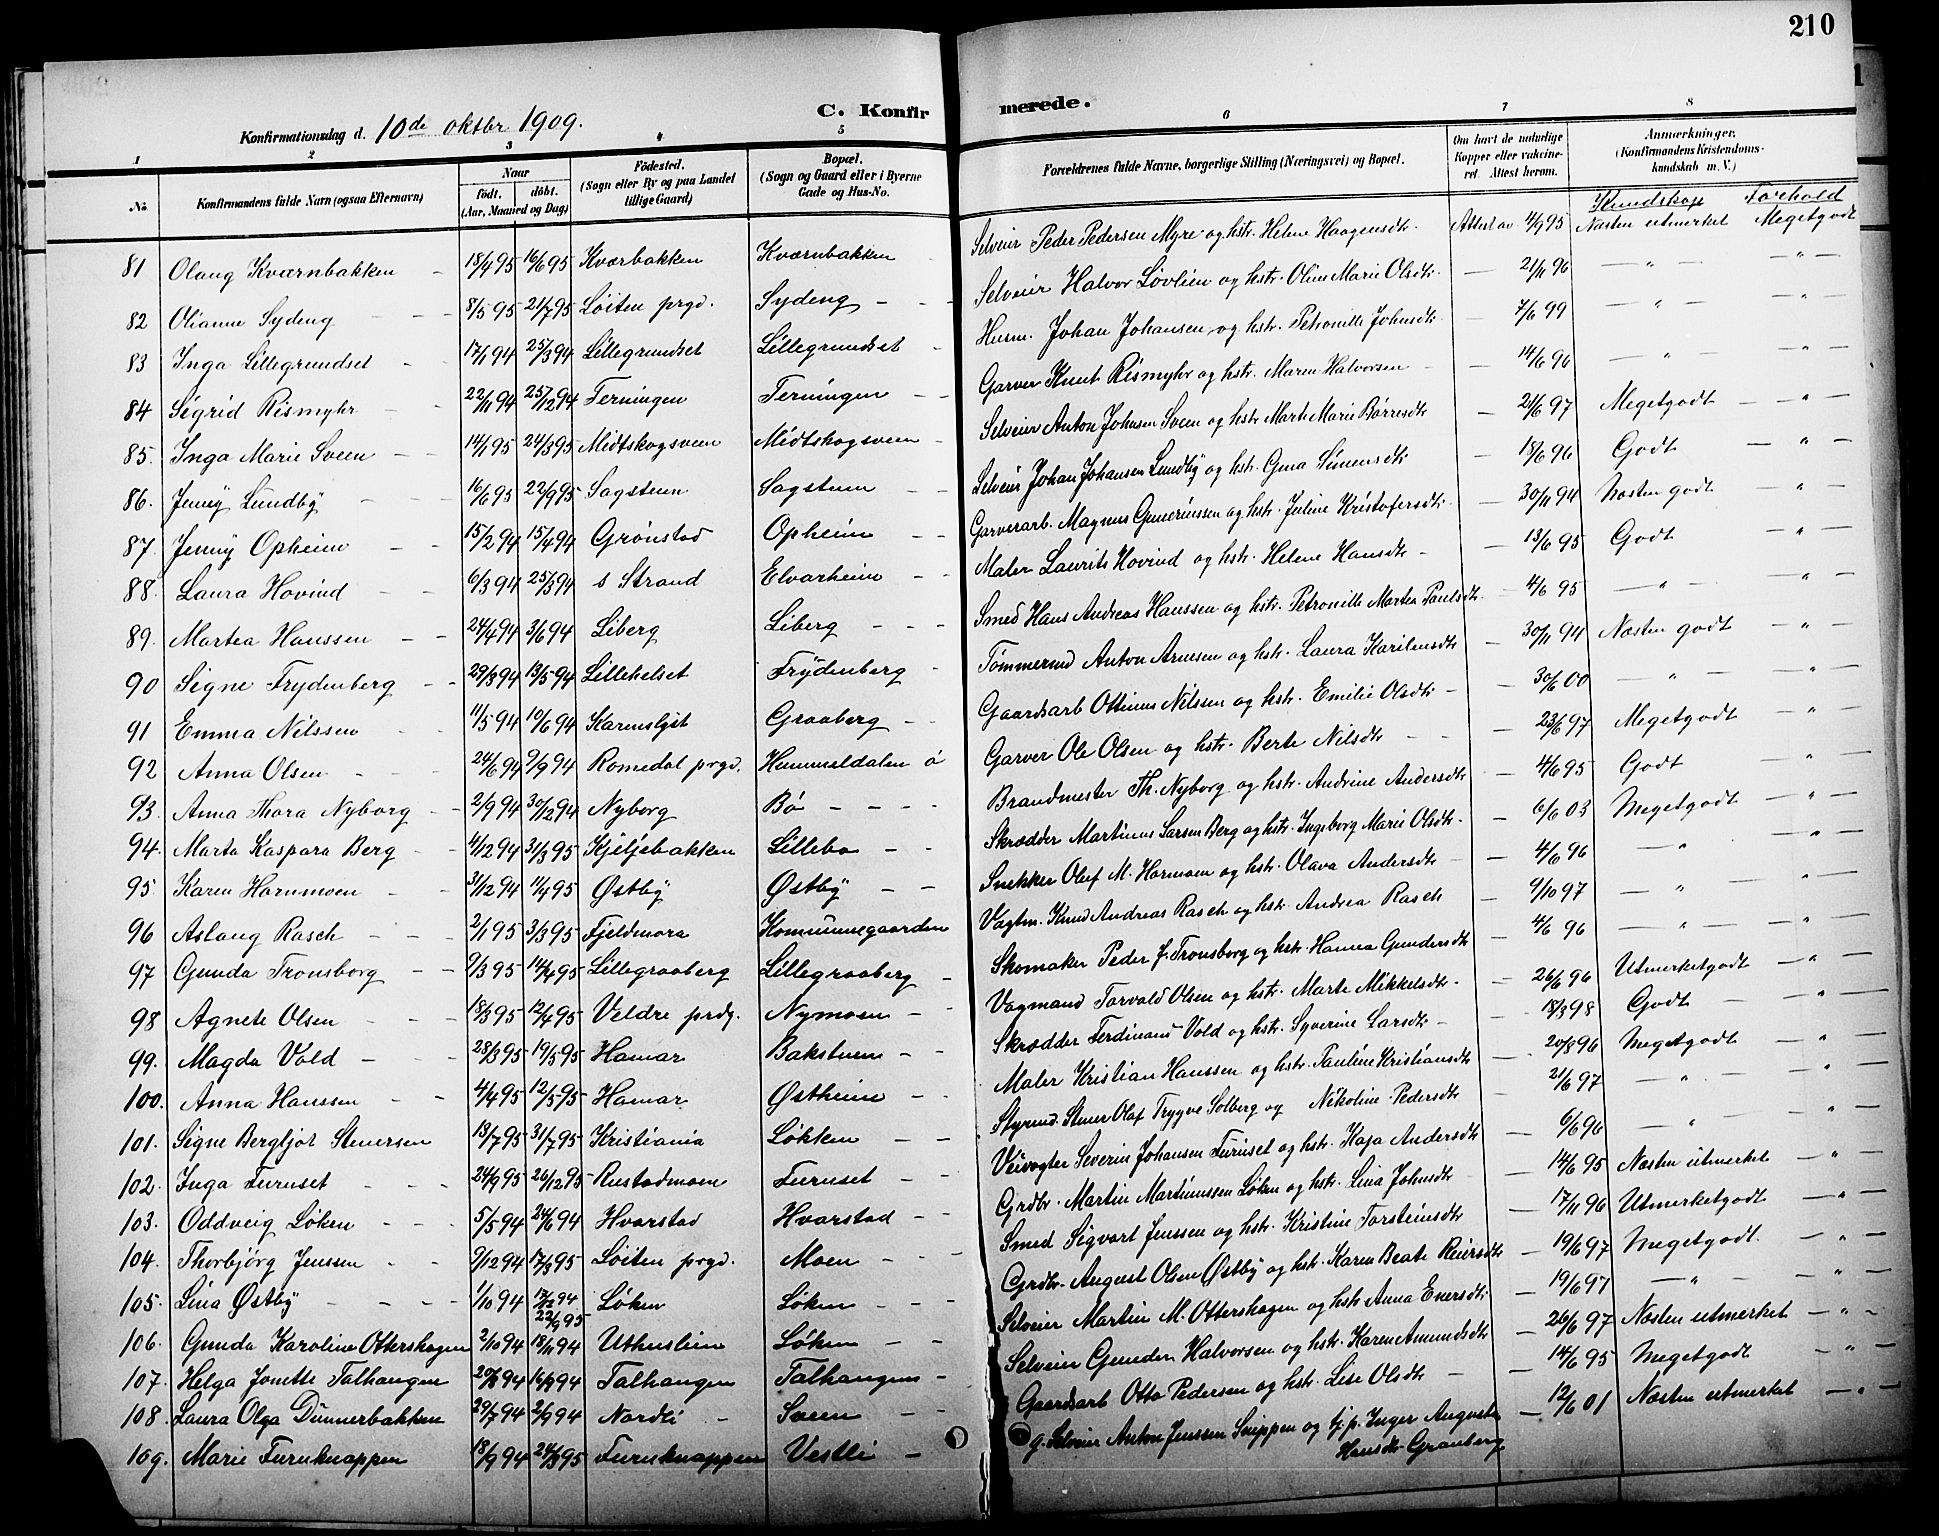 210
C. Konfirmerede.
Konfirmationsdag d. 10de oktbr 1909.
1 2 3 4 5 6 7 8
No. Konfirmandens fulde Navn (ogsaa Efternavn) Naar født. døbt. (Aar, Maaned og Dag) Fødested. (Sogn eller By og paa Landet tillige Gaard) Bopæl. (Sogn og Gaard eller i Byerne Gade og Hus-No. Forældrenes fulde Navne, borgerlige Stilling (Næringsvei) og Bopæl. Om havt de naturlige Kopper eller vakcineret. Attest herom. Anmærkninger. (Konfirmandens Kristendomskundskab m. V.)
Kundskap Forhold
81 Olaug Kværnbakken 18/4 95 16/6 95 Kværbakken Kværnbakken Selveier Peder Pedersen Myre og hstr. Helene Haagensdtr. Attest av 4/9 95 Næsten utmerket Megetgodt
82 Olianne Sydeng 8/5 95 21/7 95 Løiten prgd. Sydeng Selveier Halvor Løvlien og hstr. Oline Marie Olsdtr. — 21/11 96 — " — — " —
83 Inga Lillegrundset 17/1 94 25/3 94 Lillegrundset Lillegrundset Husm. Johan Johansen og hstr. Petronille Johnsdtr. — 7/6 99 — " — — " —
84 Sigrid Rismyhr 22/11 94 25/12 94 Terningen Terningen Garver Knut Rismyhr og hstr. Maren Halvorsen — 14/6 96 — " — — " —
85. Inga Marie Sveen 14/1 95 24/3 95 Midtskogsveen Midtskogsveen Selveier Anton Johnsen Sveen og hstr. Marte Marie Børresdtr — 21/6 97 Megetgodt — " —
86. Jenny Lundby 16/6 95 22/9 95 Sagstuen Sagstuen Selveier Johan Johansen Lundby og hstr. Gina Simensdtr — 18/6 96 Godt — " —
87. Jenny Opheim 15/2 94 15/4 94 Grønstad Opheim Garverarb. Magnus Gunerinssen og hstr. Juline Kristofersdtr. — 30/11 94 Næsten godt — " —
88. Laura Hovind 6/3 94 25/3 94 s Strand Elvarheim Maler Laurits Hovind og hstr. Helene Hansdtr — 13/6 95 Godt — " —
89. Martea Hanssen 24/4 94 3/6 94 Liberg Liberg Smed Hans Andreas Hanssen og hstr. Petronille Martea Paulsdtr. — 4/6 95 — " — — " —
90 Signe Frydenberg 29/3 94 13/5 94 Lillehelset Frydenberg Tømmermd Anton Arnesen og hstr. Laura Karilusdtr — 30/11 94 Næsten godt — " —
91 Emma Nilssen 11/5 94 10/6 94 Karenslyst Graaberg Gaardsarb Ottinus Nilssen og hstr. Emilie Olsdtr. — 30/6 00 — " — — " —
92 Anna Olsen 24/6 94 9/9 94 Romedal prgd. Hummeldalen ø Garver Ole Olsen og hstr. Berte Nilsdtr — 23/6 97 Megetgodt — " —
93. Anna Thora Nyborg 2/9 94 30/12 94 Nyborg Bø Brandmester Th. Nyborg og hstr. Andrine Andersdtr — 4/6 95 Godt — " —
94. Marta Kaspara Berg 4/12 94 31/3 95 Kjeljebakken Lillebo Skrædder Martinus Larsen Berg og hstr. Ingeborg Marie Olsdtr. — 6/6 03 Megetgodt — " —
95 Karen Hornmoen 31/12 94 11/4 95 Østby Østby Snekker Olef M. Hornmoen og hstr. Olava Andersdtr — 4/6 96 — " — — " —
96 Aslaug Rasch 2/1 95 3/3 95 Fjeldmora Kommunegaarden Vagtm. Knud Andreas Rasch og hstr. Andrea Rasch — 9/10 97 — " — — " —
97 Gunda Tronsborg 9/3 95 14/4 95 Lillegraaberg Lillegraaberg Skomaker Peder J. Tronsborg og hstr Hanna Gundersdtr — 4/6 96 — " — — " —
98 Agnete Olsen 18/3 95 12/4 95 Veldre prdg. Nymoen Vagmand Torvald Olsen og hstr. Marte Mikkelsdtr. — 26/6 96 Utmerketgodt — " —
99. Magda Vold 28/3 95 19/5 95 Hamar Bakstuen Skrædder Ferdinand Vold og hstr. Syverine Larsdtr — 18/3 98 Godt — " —
100. Anna Hanssen 4/4 95 12/5 95 Hamar Østheim Maler Kristian Hanssen og hstr. Pauline Kristiansdtr — 20/8 96 Megetgodt — " —
101. Signe Bergljot Stenersen 13/7 95 31/7 95 Kristiania Løkken Styrmd. Stener Olaf Trygve Solberg og Nikoline Pedersdtr — 21/6 97 — " — — " —
102. Inga Furuset 24/9 95 26/12 95 Rustadmoen Furuset Veivogter Severin Johansen Furuset og hstr. Kaja Andersdtr — 6/6 96 — " — — " —
103. Oddveig Løken 5/5 94 24/6 94 Hvarstad Hvarstad Grdbr. Martin Martinussen Løken og hstr. Lina Johnsdtr — 14/6 95 Næsten utmerket — " —
104. Thorbjørg Jenssen 9/12 94 17/3 95 Løiten prgd. Moen Smed Sigvart Jenssen og hstr. Kristine Torsteinsdtr — 17/11 96 Utmerketgodt — " —
105. Lina Østby 1/10 94 17/12 94 22/9 95 Løken Løken Grdbr. August Olsen Østby og hstr. Karen Beate Reiersdtr — 19/6 97 Megetgodt. — " —
106. Gunda Karoline Ottershagen 2/10 94 18/11 94 Uthuslien Løken Selveier Martin M. Ottershagen og hstr Anna Enersdtr — 19/6 97 — " — — " —
107. Helga Jonette Talhaugen 20/8 94 16/9 94 Talhaugen Talhaugen Selveier Gunder Halvorsen og hstr. Karen Amundsdtr — 26/6 97 Næsten utmerket — " —
108. Laura Olga Dunnerbakken 29/7 94 2/9 94 Nordli Sveen Gaardsarb Otto Pedersen og hstr. Lise Olsdtr — 14/6 95 Megetgodt — " —
109. Marie Furuknappen 18/9 94 24/3 95 Furuknappen Vestli g. Selveier Anton Jenssen Snippen og tj.p. Inger Augusta Hansdtr Granberg — 12/6 01 Næsten utmerket — " —